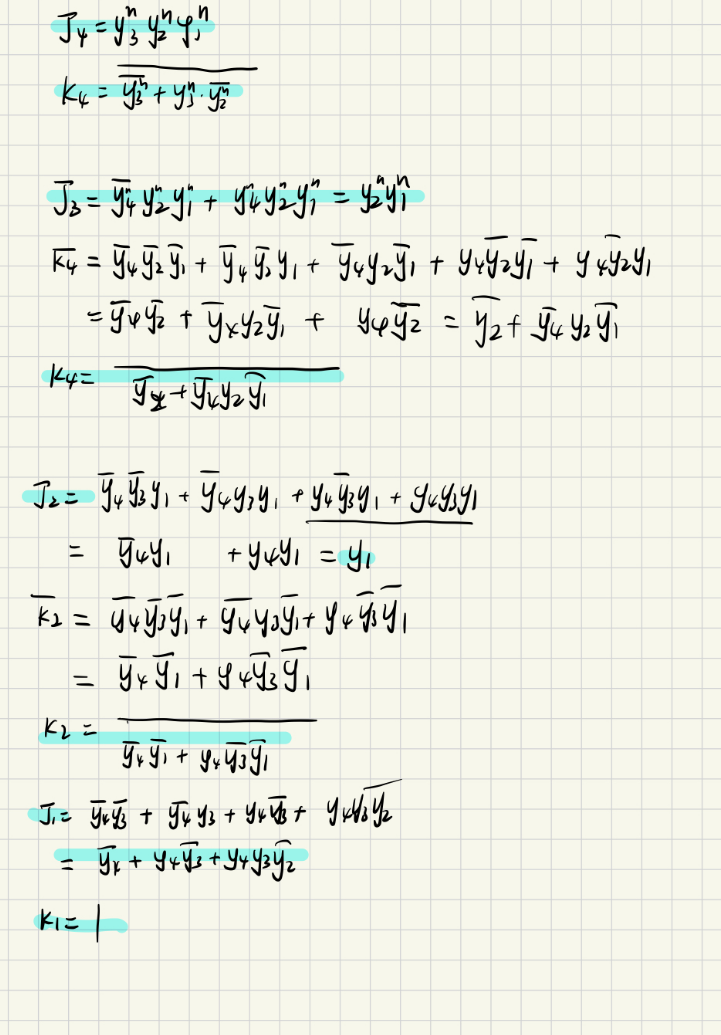 J₄ = y₃ⁿ y₂ⁿ y₁ⁿ
K₄ = \overline{\overline{y₃ⁿ} + y₃ⁿ · \overline{y₂ⁿ}}
J₃ = \overline{y₄ⁿ} y₂ⁿ y₁ⁿ + y₄ⁿ y₂ⁿ y₁ⁿ = y₂ⁿ y₁ⁿ
\overline{K₄} = \overline{y₄} \overline{y₂} \overline{y₁} + \overline{y₄} \overline{y₂} y₁ + \overline{y₄} y₂ \overline{y₁} + y₄ \overline{y₂} \overline{y₁} + y₄ \overline{y₂} y₁
= \overline{y₄} \overline{y₂} + \overline{y₄} y₂ \overline{y₁} + y₄ \overline{y₂} = \overline{y₂} + \overline{y₄} y₂ \overline{y₁}
K₄ = \overline{\overline{y₂} + \overline{y₄} y₂ \overline{y₁}}
J₂ = \overline{y₄} \overline{y₃} y₁ + \overline{y₄} y₃ y₁ + y₄ \overline{y₃} y₁ + y₄ y₃ y₁
= \overline{y₄} y₁ + y₄ y₁ = y₁
\overline{K₂} = \overline{y₄} \overline{y₃} \overline{y₁} + \overline{y₄} y₃ \overline{y₁} + y₄ \overline{y₃} \overline{y₁}
= \overline{y₄} \overline{y₁} + y₄ \overline{y₃} \overline{y₁}
K₂ = \overline{\overline{y₄} \overline{y₁} + y₄ \overline{y₃} \overline{y₁}}
J₁ = \overline{y₄} \overline{y₃} + \overline{y₄} y₃ + y₄ \overline{y₃} + y₄ y₃ \overline{y₂}
= \overline{y₄} + y₄ \overline{y₃} + y₄ y₃ \overline{y₂}
K₁ = 1